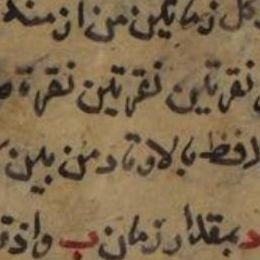 كل زمانين من ازمنة
نقرتين نقرتين نقرة
لافظ بالاوتاد من بين
بمقدار زمان ب واذ